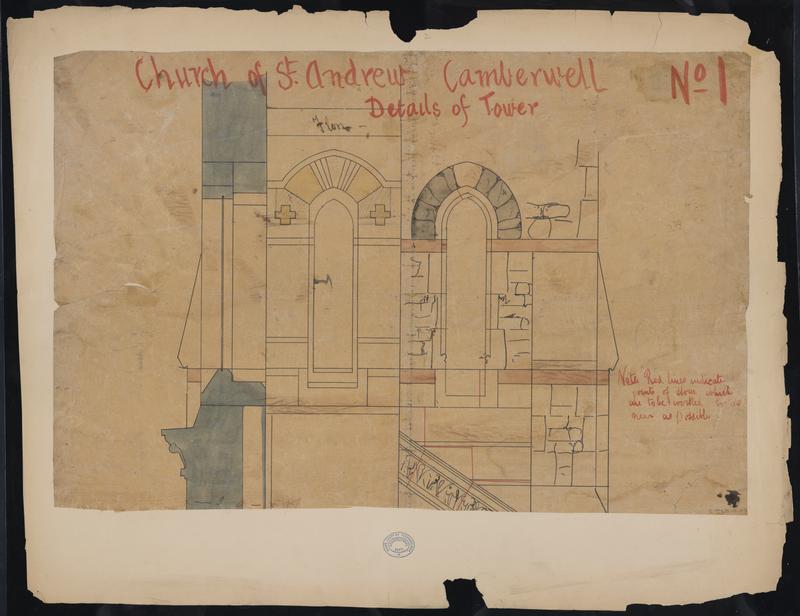 Church of St. Andrew Camberwell
No 1
Details of Tower
Note Red lines indicate
joints of stone which
are to be worked
near as possible